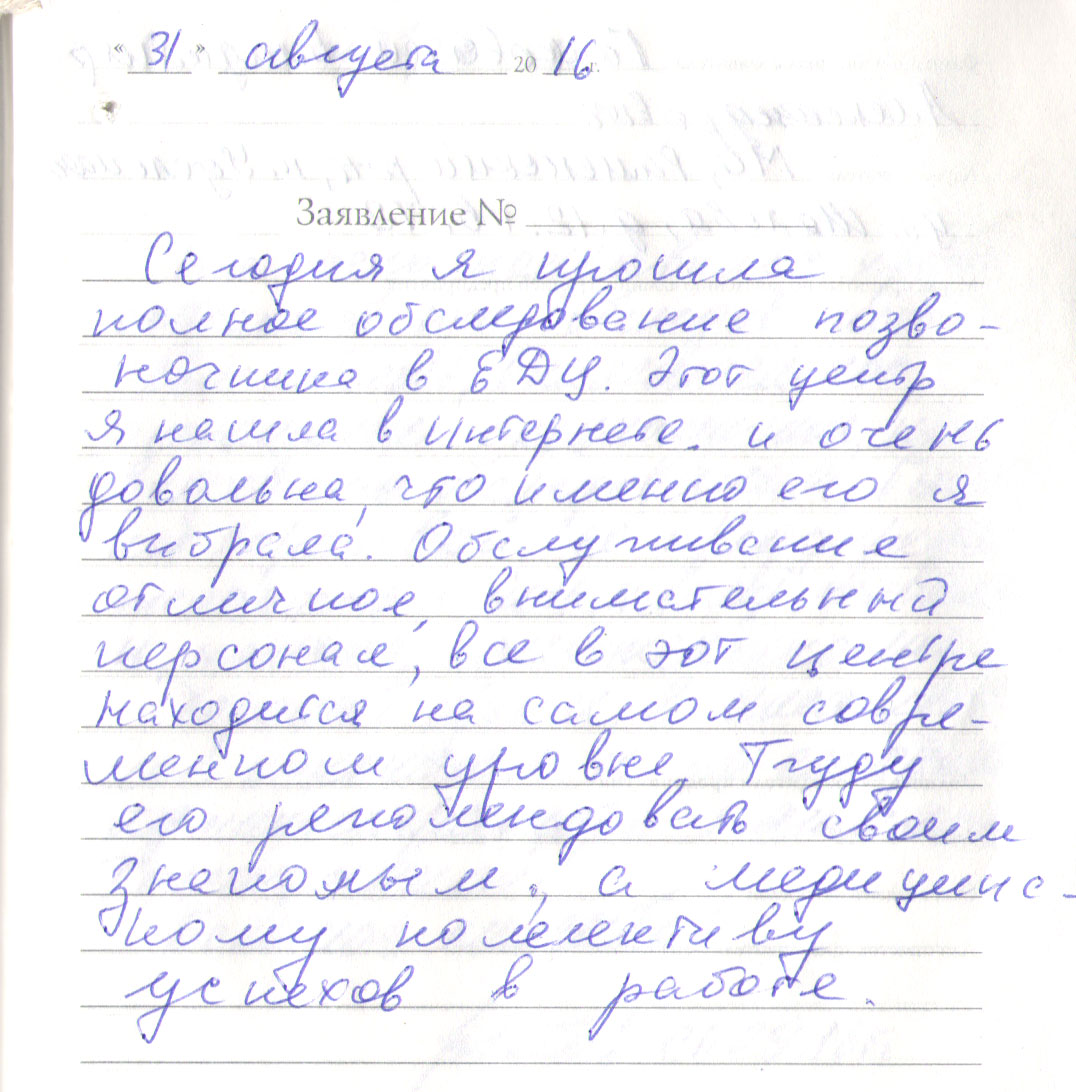 "31" августа 2016 г.
Заявление №
Сегодня я прошла
полное обследование позво-
ночника в ЕДЦ. Этот центр
я нашла в интернете. и очень
довольна, что именно его я
выбрала. Обслуживание
отличное, внимательный
персонал, все в эот центре
находится на самом совре-
менном уровне. Буду
его рекомендовать своим
знакомым, а медицинс-
кому коллективу
успехов в работе.